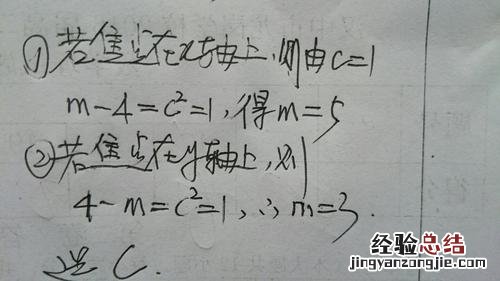 ①若焦点在x轴上,则由c=1
m-4=c²=1,得m=5
②若焦点在y轴上,则
4-m=c²=1,∴m=3.
选C.
经验总结
jingyanzongjie.com